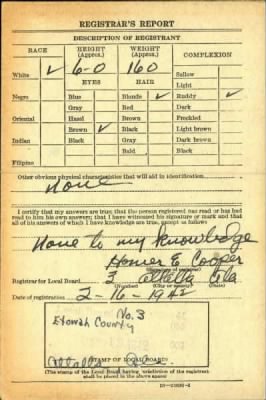 REGISTRAR'S REPORT
DESCRIPTION OF REGISTRANT
RACE HEIGHT (Approx.) WEIGHT (Approx.) COMPLEXION
White ✓ 6-0 160 Sallow
EYES HAIR Light
Negro Blue Blonde ✓ Ruddy ✓
Gray Red Dark
Oriental Hazel Brown Freckled
Brown ✓ Black Light brown
Indian Black Gray Dark brown
Bald Black
Filipino
Other obvious physical characteristics that will aid in identification
None
I certify that my answers are true; that the person registered has read or has had
read to him his own answers; that I have witnessed his signature or mark and that
all of his answers of which I have knowledge are true, except as follows:
None to my knowledge
Homer E Cooper
(Signature of registrar)
Registrar for Local Board 3 Attalla Ala
(Number) (City or county) (State)
Date of registration 2-16-1942
No. 3
Etowah County
Attalla Ala.
(STAMP OF LOCAL BOARD)
(The stamp of the Local Board having jurisdiction of the registrant
shall be placed in the above space)